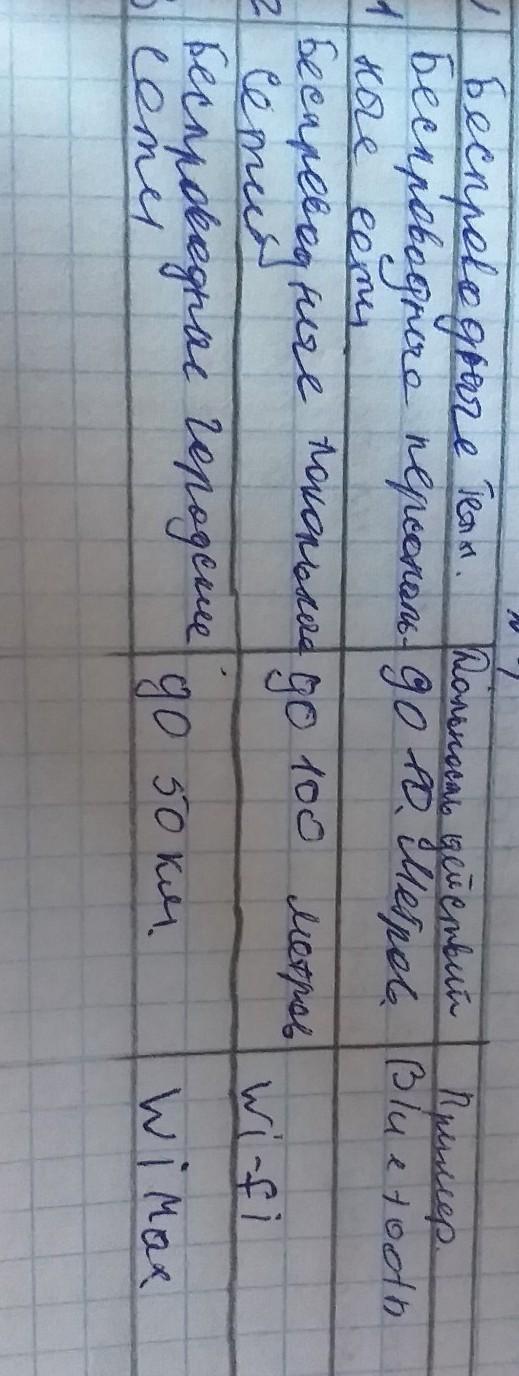 Беспроводные Техн. Дальность действий Пример.
1 Беспроводные персональ- до 10 метров. Bluetooth
ные сети
2 Беспроводные локальные до 100 метров Wi-fi
сети
3 Беспроводные городские до 50 км. WiMax
сети